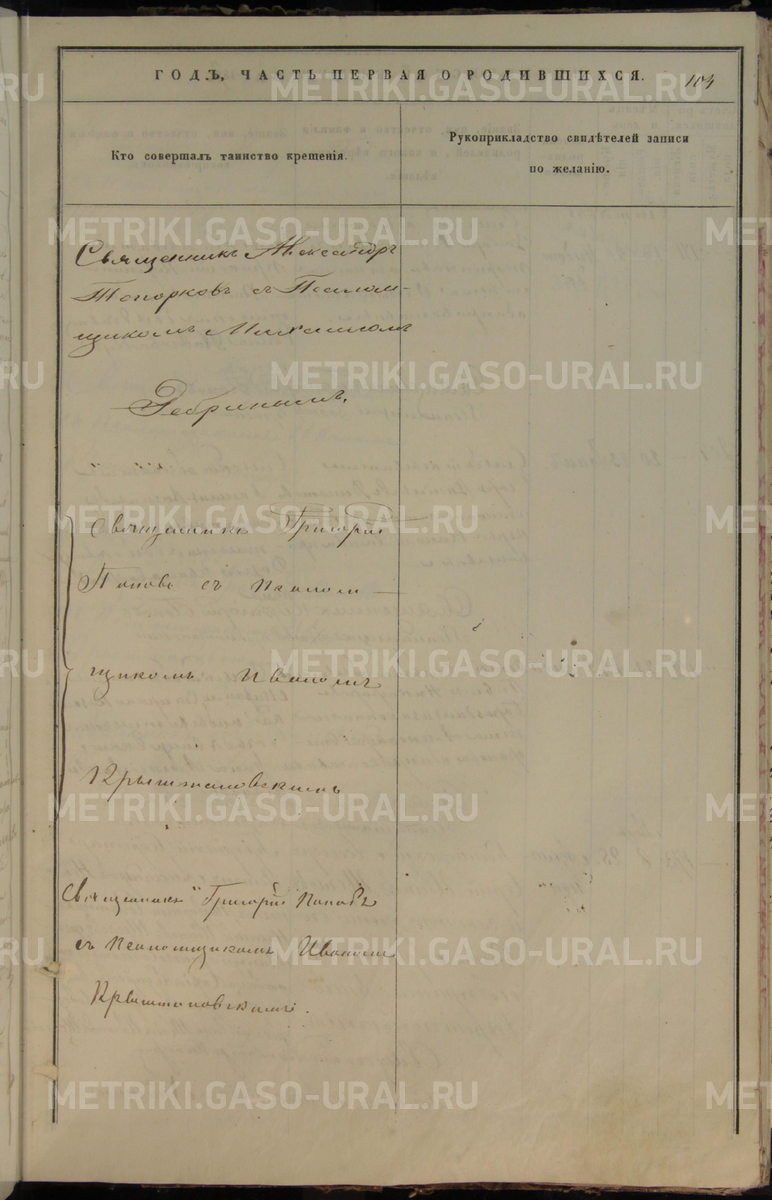 ГОДЪ, ЧАСТЬ ПЕРВАЯ О РОДИВШИХСЯ.
104
Кто совершалъ таинство крещенія.
Рукоприкладство свидѣтелей записи
по желанію.
Священникъ Александръ
Топорковъ съ Псалом-
щикомъ Михаиломъ
Ребринымъ.
Священникъ Григорій
Поповъ съ Псалом-
щикомъ Иваномъ
Священникъ Григорій Поповъ
съ Псаломщикомъ Иваномъ
METRIKI.GASO-URAL.RU